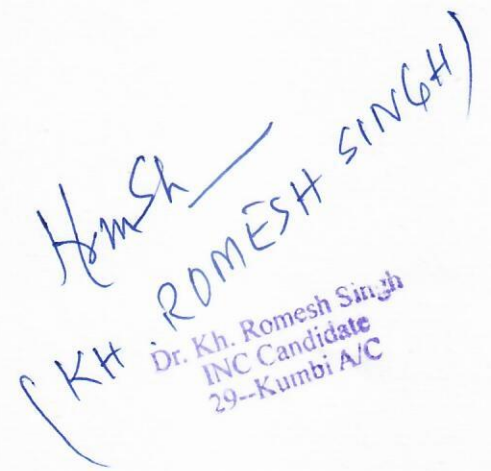 (KH. ROMESH SINGH)
Dr. Kh. Romesh Singh
INC Candidate
29--Kumbi A/C